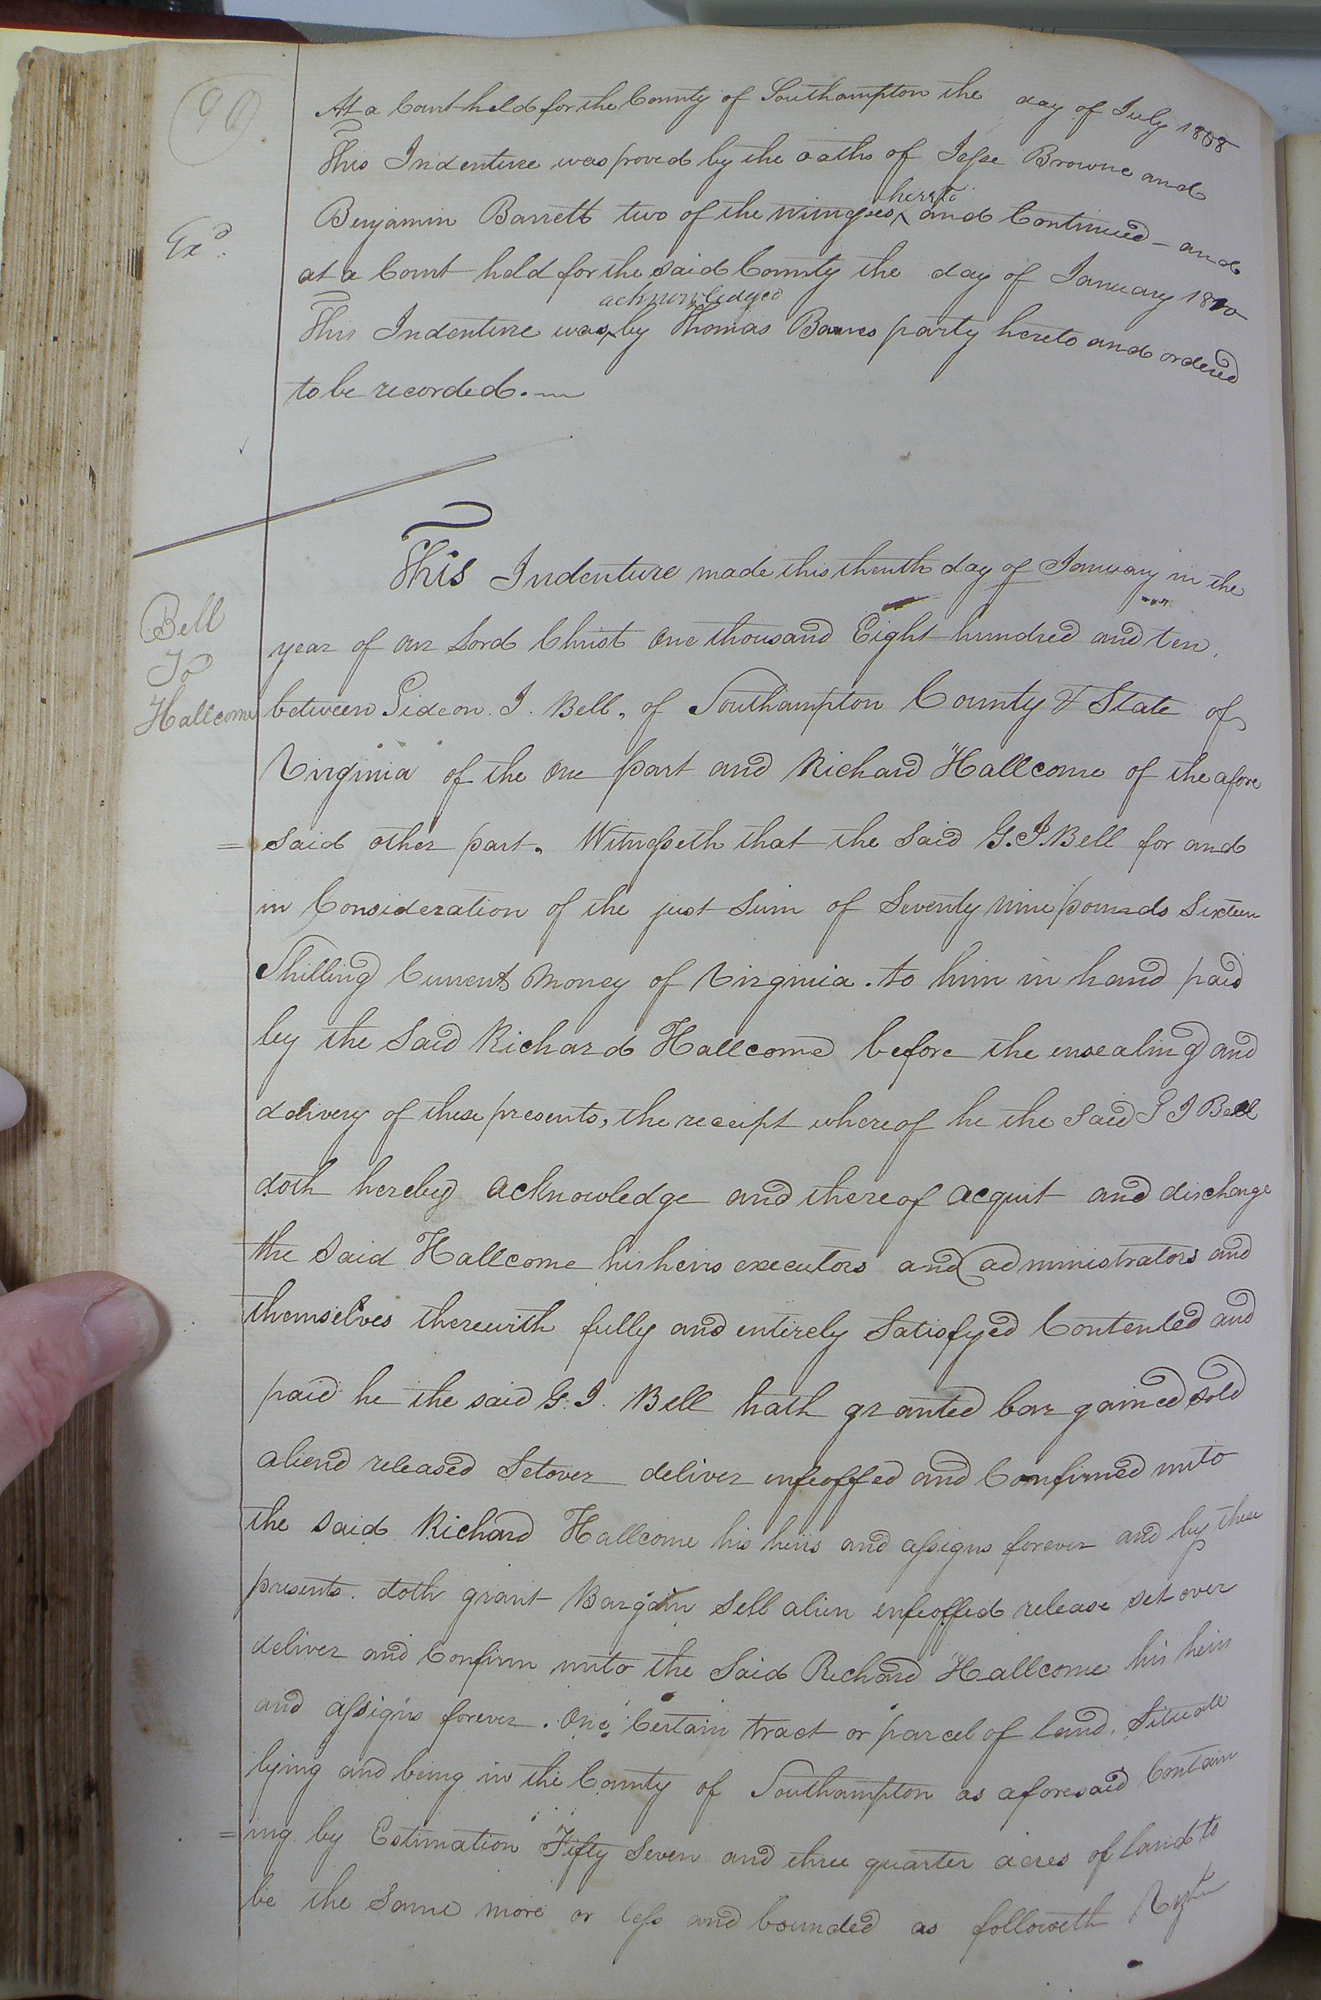 90
At a Court held for the County of Southampton the day of July 1808
This Indenture was proved by the oaths of Jesse Browne and
Benjamin Barrett two of the witnesses hereto and Continued - and
Exd.
at a Court held for the said County the day of January 1810
This Indenture was acknowledged by Thomas Barnes party hereto and ordered
to be recorded.
This Indenture made this thenth day of January in the
year of our Lord Christ One thousand Eight hundred and ten,
Bell
To
Hallcome
between Gideon. J. Bell, of Southampton County & State of
Virginia of the One part and Richard Hallcome of the afore
=said other part. Witnesseth that the Said G. J. Bell for and
in Consideration of the just Sum of Seventy nine pounds Sixteen
Shilling Current Money of Virginia. to him in hand paid
by the Said Richard Hallcome before the ensealing and
delivery of these presents, the receipt whereof he the Said G J Bell
doth hereby acknowledge and thereof acquit and discharge
the Said Hallcome his heirs executors and administrators and
themselves therewith fully and entirely Satisfyed Contented and
paid he the said G. J. Bell hath granted bargained sold
aliend released Setover deliver enfeoffed and Confirmed unto
the said Richard Hallcome his heirs and assigns forever and by these
presents. doth grant Bargain Sell alien enfeoffed release set over
deliver and Confirm unto the Said Richard Hallcome his heirs
and assigns forever. One Certain tract or parcel of land, Situate
lying and being in the County of Southampton as aforesaid Contain
=ing by Estimation Fifty Seven and three quarter acres of land to
be the Same more or less and bounded as followeth